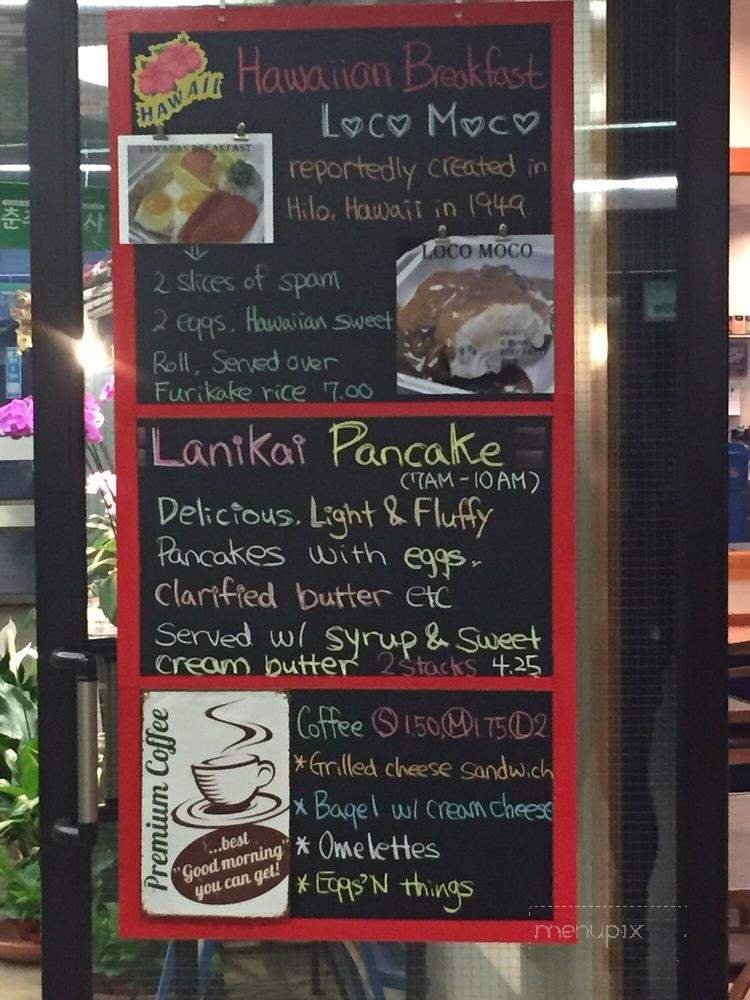 HAWAII
Hawaiian Breakfast
Loco Moco
HAWAIIAN BREAKFAST
reportedly created in
Hilo, Hawaii in 1949
LOCO MOCO
2 slices of spam
2 eggs, Hawaiian sweet
Roll, Served over
Furikake rice 7.00
Lanikai Pancake
(7AM - 10AM)
Delicious, Light & Fluffy
Pancakes with eggs,
clarified butter etc
Served w/ syrup & sweet
cream butter 2 stacks 4.25
Premium Coffee
...best
"Good morning"
you can get!
Coffee S 1.50, M 1.75 L 2
* Grilled cheese sandwich
* Bagel w/ cream cheese
* Omelettes
* Eggs 'N things
menupix